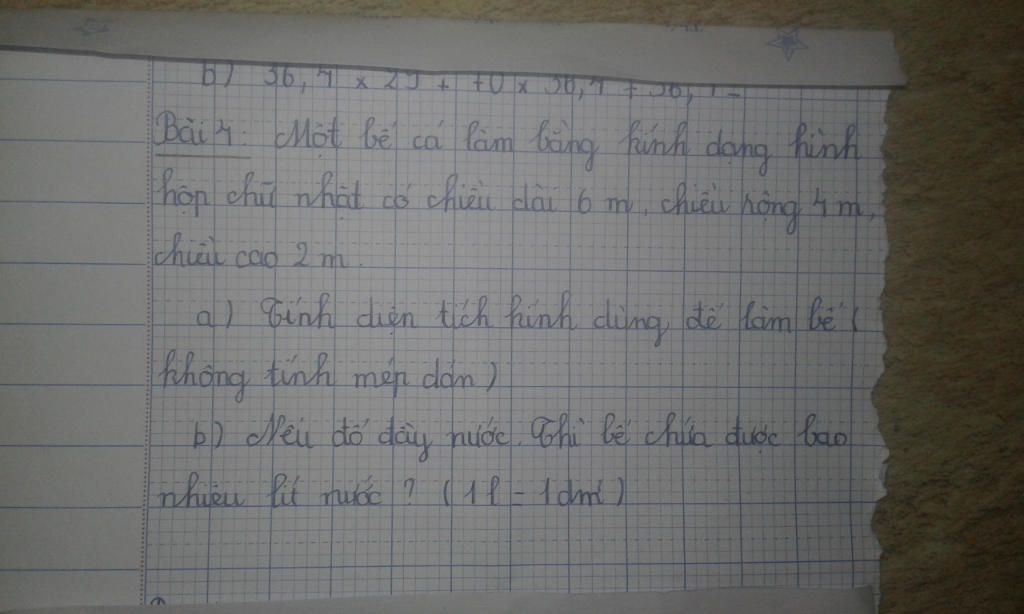 b) 36,4 × 29 + 70 × 36,4 + 36,4 =
Bài 4: Một bể cá làm bằng kính dạng hình
hộp chữ nhật có chiều dài 6 m, chiều rộng 4 m,
chiều cao 2 m.
a) Tính diện tích kính dùng để làm bể (
không tính mép dán)
b) Nếu đổ đầy nước. Thì bể chứa được bao
nhiêu lít nước ? (1l = 1dm³)